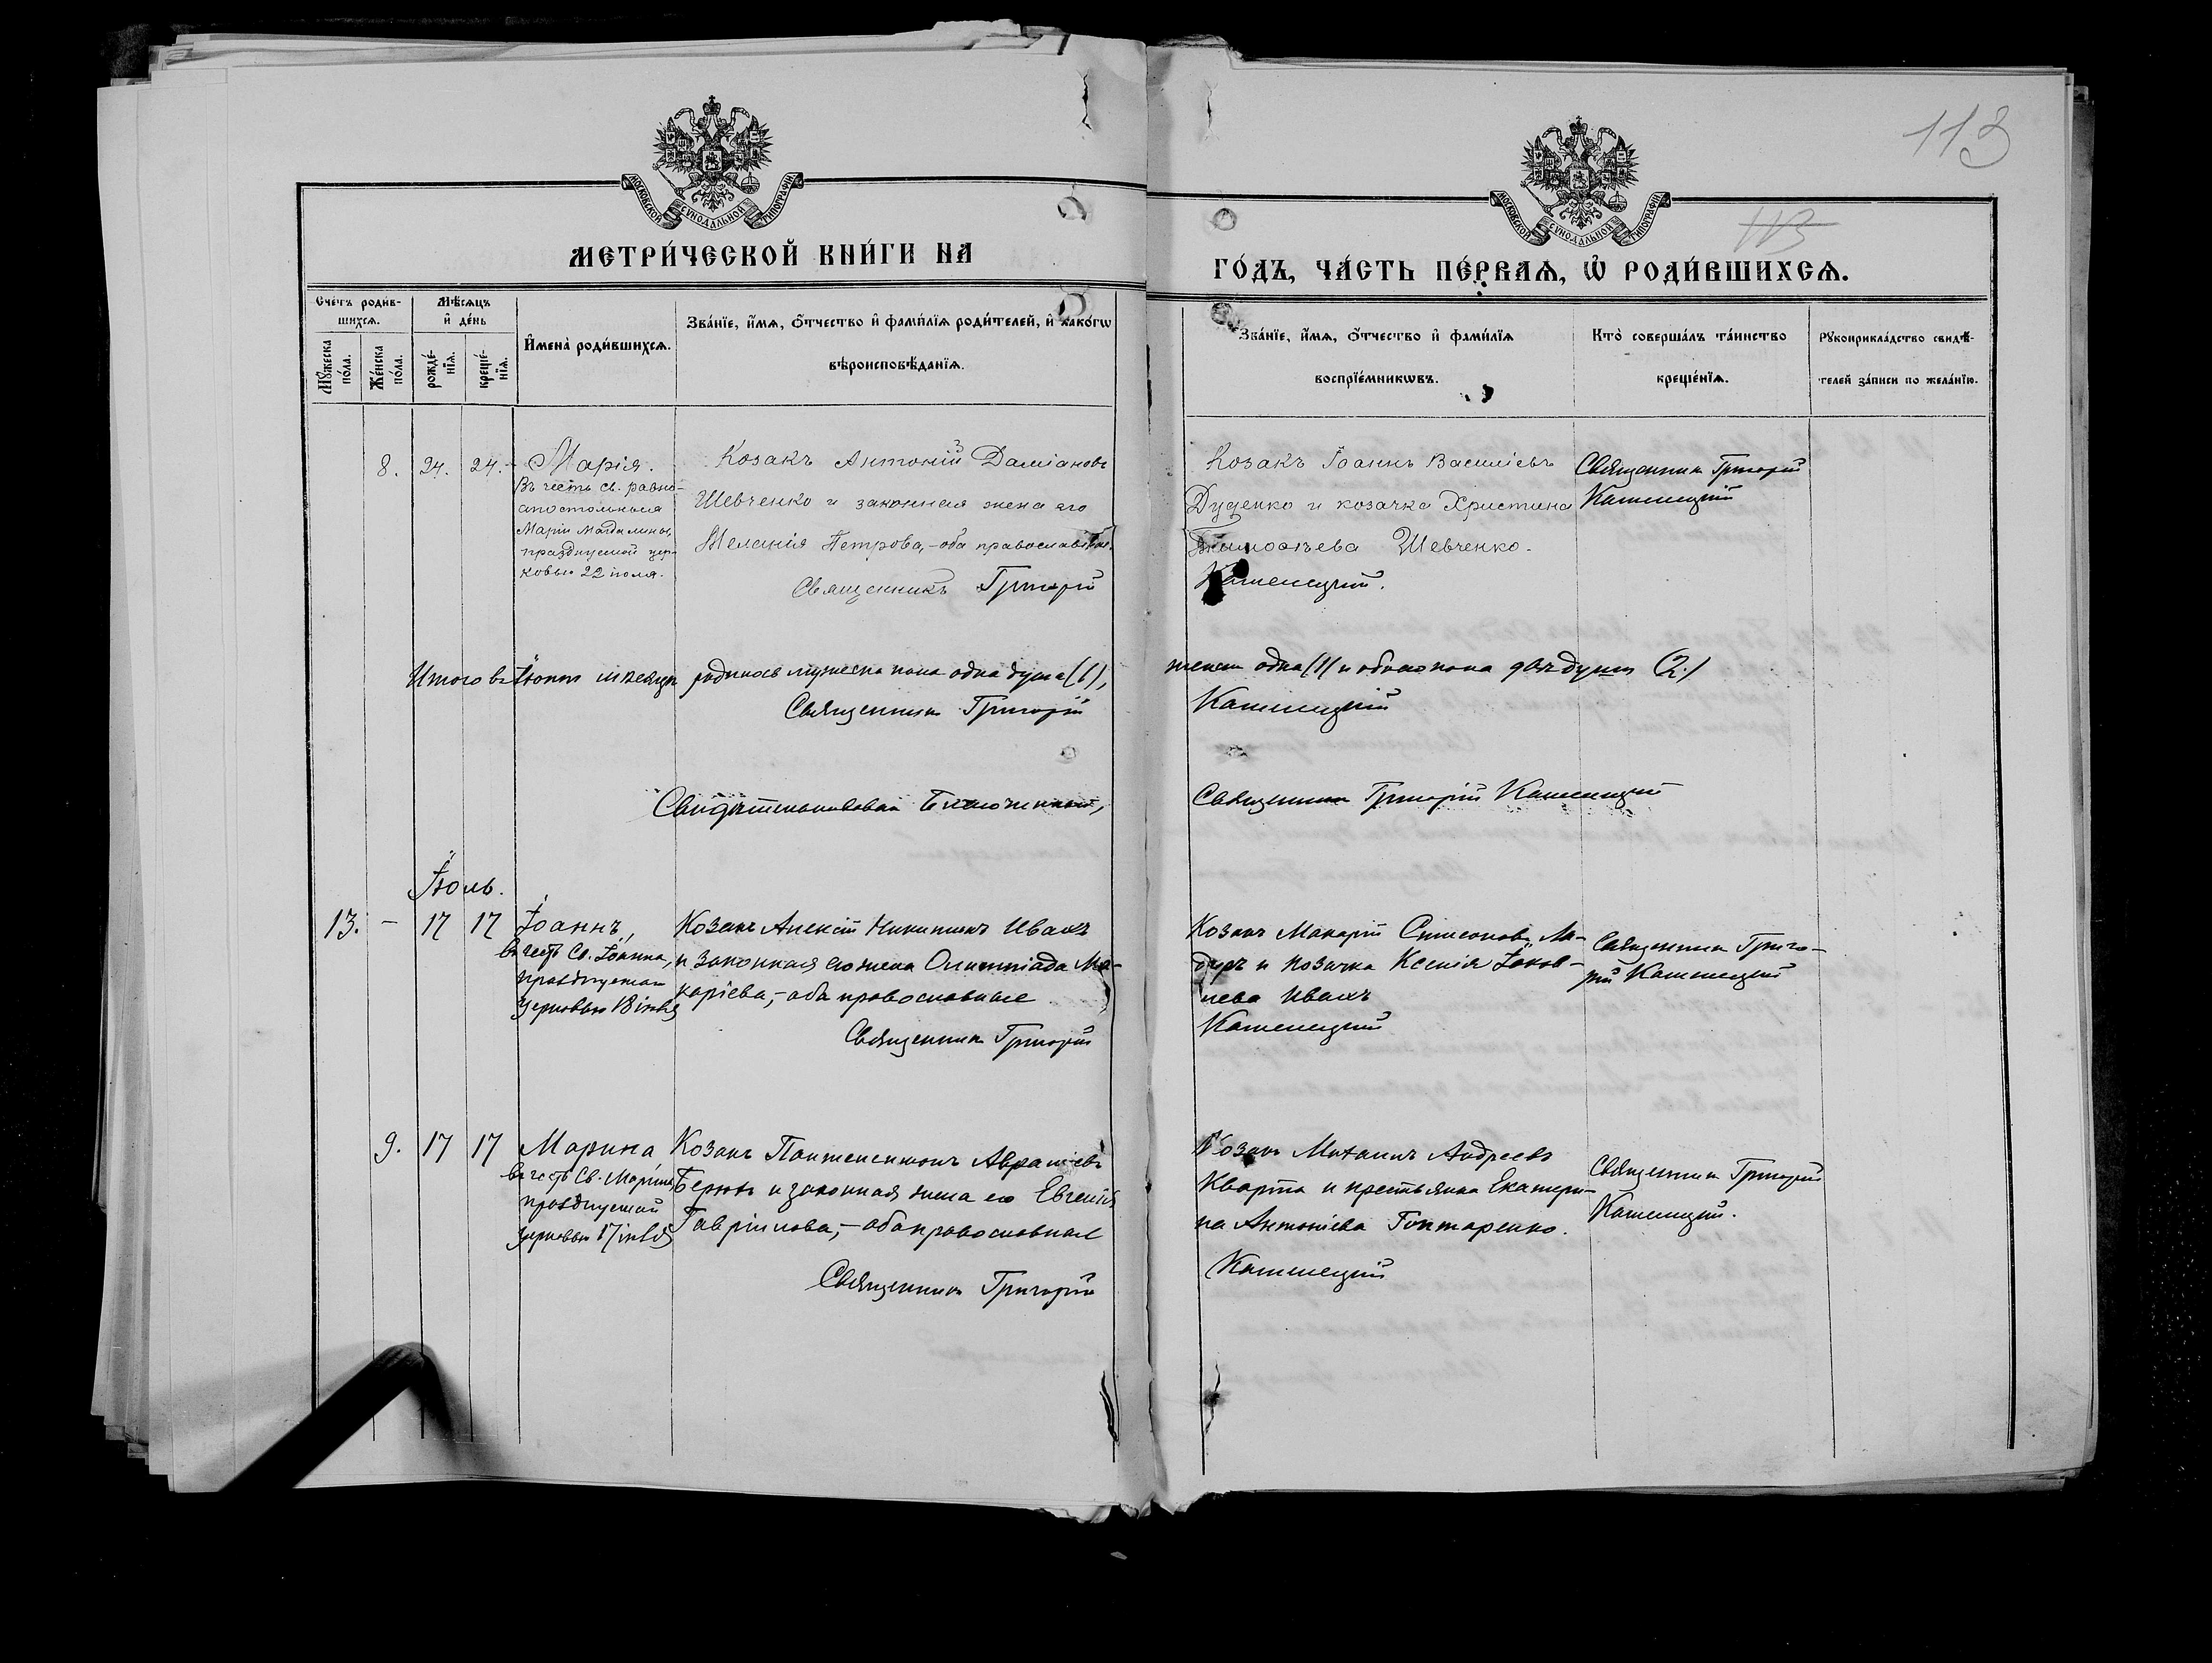 113
МОСКОВСКОЙ СѴНОДАЛЬНОЙ ТИПОГРАФІИ
МОСКОВСКОЙ СѴНОДАЛЬНОЙ ТИПОГРАФІИ
113
МЕТРИ́ЧЕСКОЙ КНИ́ГИ НА
ГО́ДЪ, ЧА́СТЬ ПЕ́РВАѦ, Ѡ҆ РОДИ́ВШИХСѦ.
Сче́тъ роди́в-
шихсѧ.
Мꙋ́жеска по́ла.
Же́нска по́ла.
Мѣ́сѧцъ
и҆ де́нь
рожде́-
нїѧ.
креще́-
нїѧ.
И҆мена̀ роди́вшихсѧ.
Зва́нїе, и҆́мѧ, ѻ҆́тчество и҆ фами́лїѧ роди́телей, и҆ како́гѡ
вѣроисповѣ́данїѧ.
Зва́нїе, и҆́мѧ, ѻ҆́тчество и҆ фами́лїѧ
воспрїе́мникѡвъ.
Кто̀ соверша́лъ та́инство
креще́нїѧ.
Рꙋкоприкла́дство свидѣ́-
телей за́писи по жела́нїю.
8. 24. 24. Марія.
Въ честь св. равно-
апостольныя
Маріи Магдалины,
празднуемой цер-
ковью 22 іюля.
Козакъ Антоній Даміановъ
Шевченко и законная жена его
Меланія Петрова,-оба православные.
Священникъ Григорій
Козакъ Іоаннъ Василіевъ
Дуденко и козачка Христина
Тимоѳеева Шевченко.
Каменецкій.
Священникъ Григорій
Каменецкій
Итого въ Іюнѣ мѣсяцѣ родилось мужеска пола одна душа (1),
женск одна (1) и обоего пола двѣ души (2.)
Священникъ Григорій
Каменецкій
Свидѣтельствовалъ
Священникъ Григорій Каменецкій
Іюль.
13. - 17 17 Іоаннъ,
въ честь Св. Іоанна,
празднуемаго
церковью 18 іюля
Козакъ Алексій Никитинъ Ивахъ
и законная его жена Олимпіада Ма-
каріева,-оба православные
Священникъ Григорій
Козакъ Макарій Симеоновъ
и козачка Ксенія Іаков-
лева Ивахъ
Каменецкій
Священникъ Григо-
рій Каменецкій
9. 17 17 Марина
въ честь Св. Марины
празднуемой
церковью 17 іюля
Козакъ Пантелеимонъ Аврамовъ
и законная жена его Евгенія
Гавріилова,-оба православные
Священникъ Григорій
Козакъ Михаилъ Андреевъ
Кварта и крестьянка Екатери-
на Антоніева Гонтаренко.
Каменецкій
Священникъ Григорій
Каменецкій.